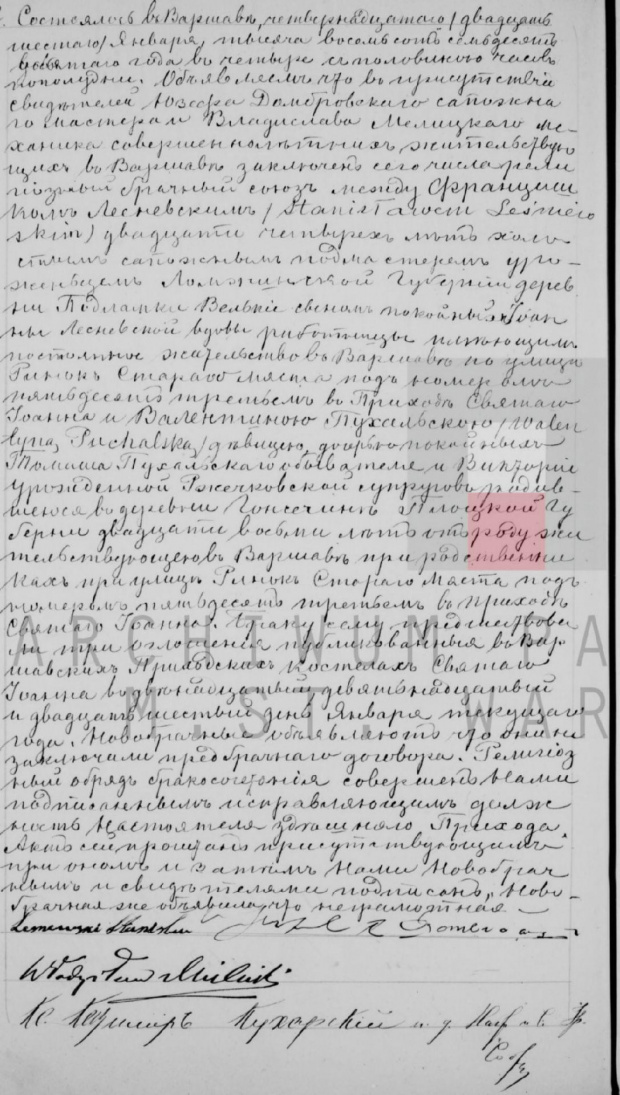 Состоялось въ Варшавѣ, четырнадцатаго /двадцать
шестаго/ Января, тысяча восемьсотъ семьдесятъ
года въ четыре съ половиною часовъ
пополудни. Объявляемъ что въ присутствіи
свидѣтелей Юзефа Домбровскаго сапожна
го мастера и Владислава Мелицкаго ме-
ханика совершеннолѣтнихъ жительствую
щихъ въ Варшавѣ заключенъ сего числа рели
гіозный брачный союзъ между Францишкомъ
Лесневскимъ /Stanisławem Leśniew
skim/ двадцати четырехъ лѣтъ холо
стымъ сапожнымъ подмастеремъ уро-
женцемъ Ломжинской Губерніи дерев
ни Вельки сыномъ покойныхъ Іоан
ны Лесневской вдовы работницы имѣющимъ
постоянное жительство въ Варшавѣ на улицѣ
Рынокъ Стараго Мяста подъ номеромъ
пятьдесятъ третьемъ въ Приходѣ Святаго
Іоанна и Валентиною Пухальскою /Walen
tyną Puchalską/ дѣвицею, дочерью покойныхъ
Томаша Пухальскаго обывателя и Викторіи
урожденной Ржечковской супруговъ родив-
шеюся въ деревни Плоцкой Гу
берніи двадцати восьми лѣтъ отъ роду жи
тельствующею въ Варшавѣ при родственни
кахъ при улицѣ Рынокъ Стараго Мяста подъ
номеромъ пятьдесятъ третьемъ въ приходѣ
Святаго Іоанна. Браку сему предшествова
ли три оглашенія публикованныя въ Вар
шавскихъ Приходскихъ костелахъ Святаго
Іоанна въ двѣнадцатый девятнадцатый
и двадцать шестый день Января текущаго
года. Новобрачные объявляютъ что они не
заключали предбрачнаго договора. Религіоз
ный обрядъ бракосочетанія совершенъ Нами
подписаннымъ исправляющимъ долж
ность Настоятеля здѣшняго Прихода.
Актъ сей прочтенъ присутствующимъ
при ономъ и затѣмъ Нами Новобрач
нымъ и свидѣтелями подписанъ, Ново-
брачная же объявила что неграмотная —
Leśniewski Stanisław
Władysław Milicki
Кс. Казимиръ Кухарскій и. д. Наст.
ARCHIWUM
M. ST. WAR